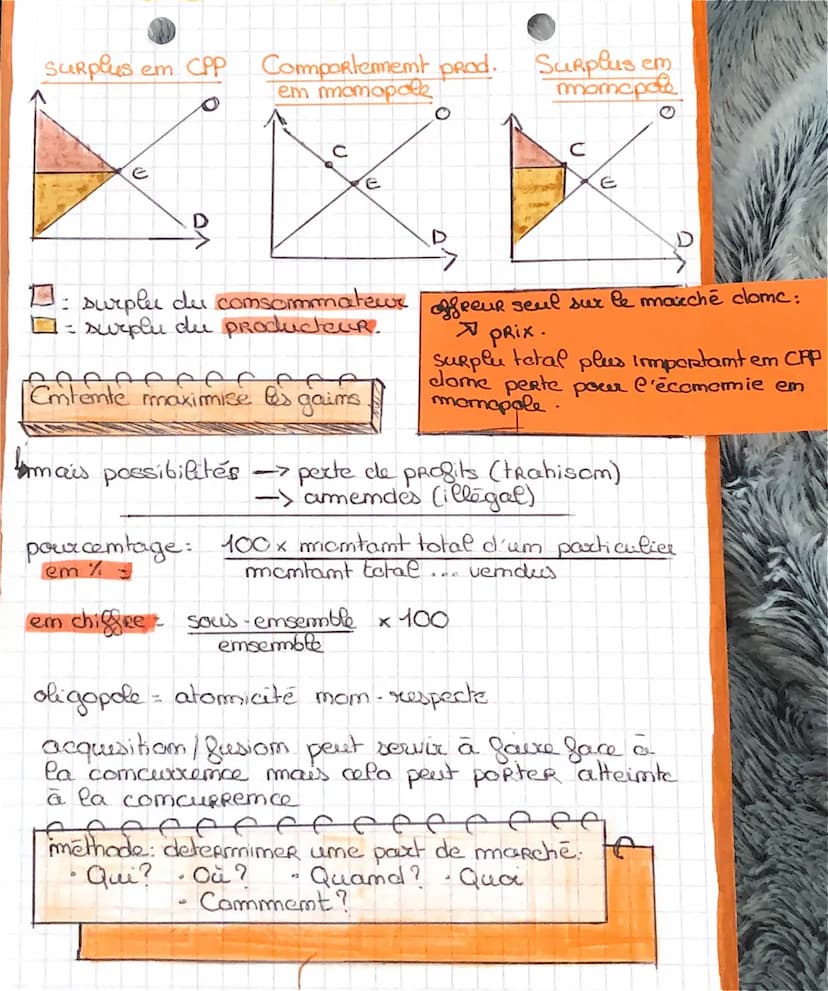 surplus em CPP
Comportememt prod.
em momopole
Surplus em
momopole
O
E
D
O
C
E
D
O
C
E
D
: surplu du comsommateur
= surplu du producteur.
offreur seul sur le marché domc:
↗ prix.
surplu total plus importamt em CPP
domc perte pour l'écomomie em
momopole.
Emtemte maximise les gaims
↳mais possibilités → perte de profits (trahisom)
→ amemdes (illégal)
pourcemtage: 100 x momtamt total d'um particulier
em % = momtamt total ... vemdus
em chiffre = sous-emsemble x 100
emsemble
oligopole = atomicité mom-respecte
acquisitiom/fusiom peut servir à faire face à
la comcurremce mais cela peut porter atteimte
à la comcurremce
méthode: determimer ume part de marché:
• Qui? • Où? • Quamd? • Quoi
• Commemt?